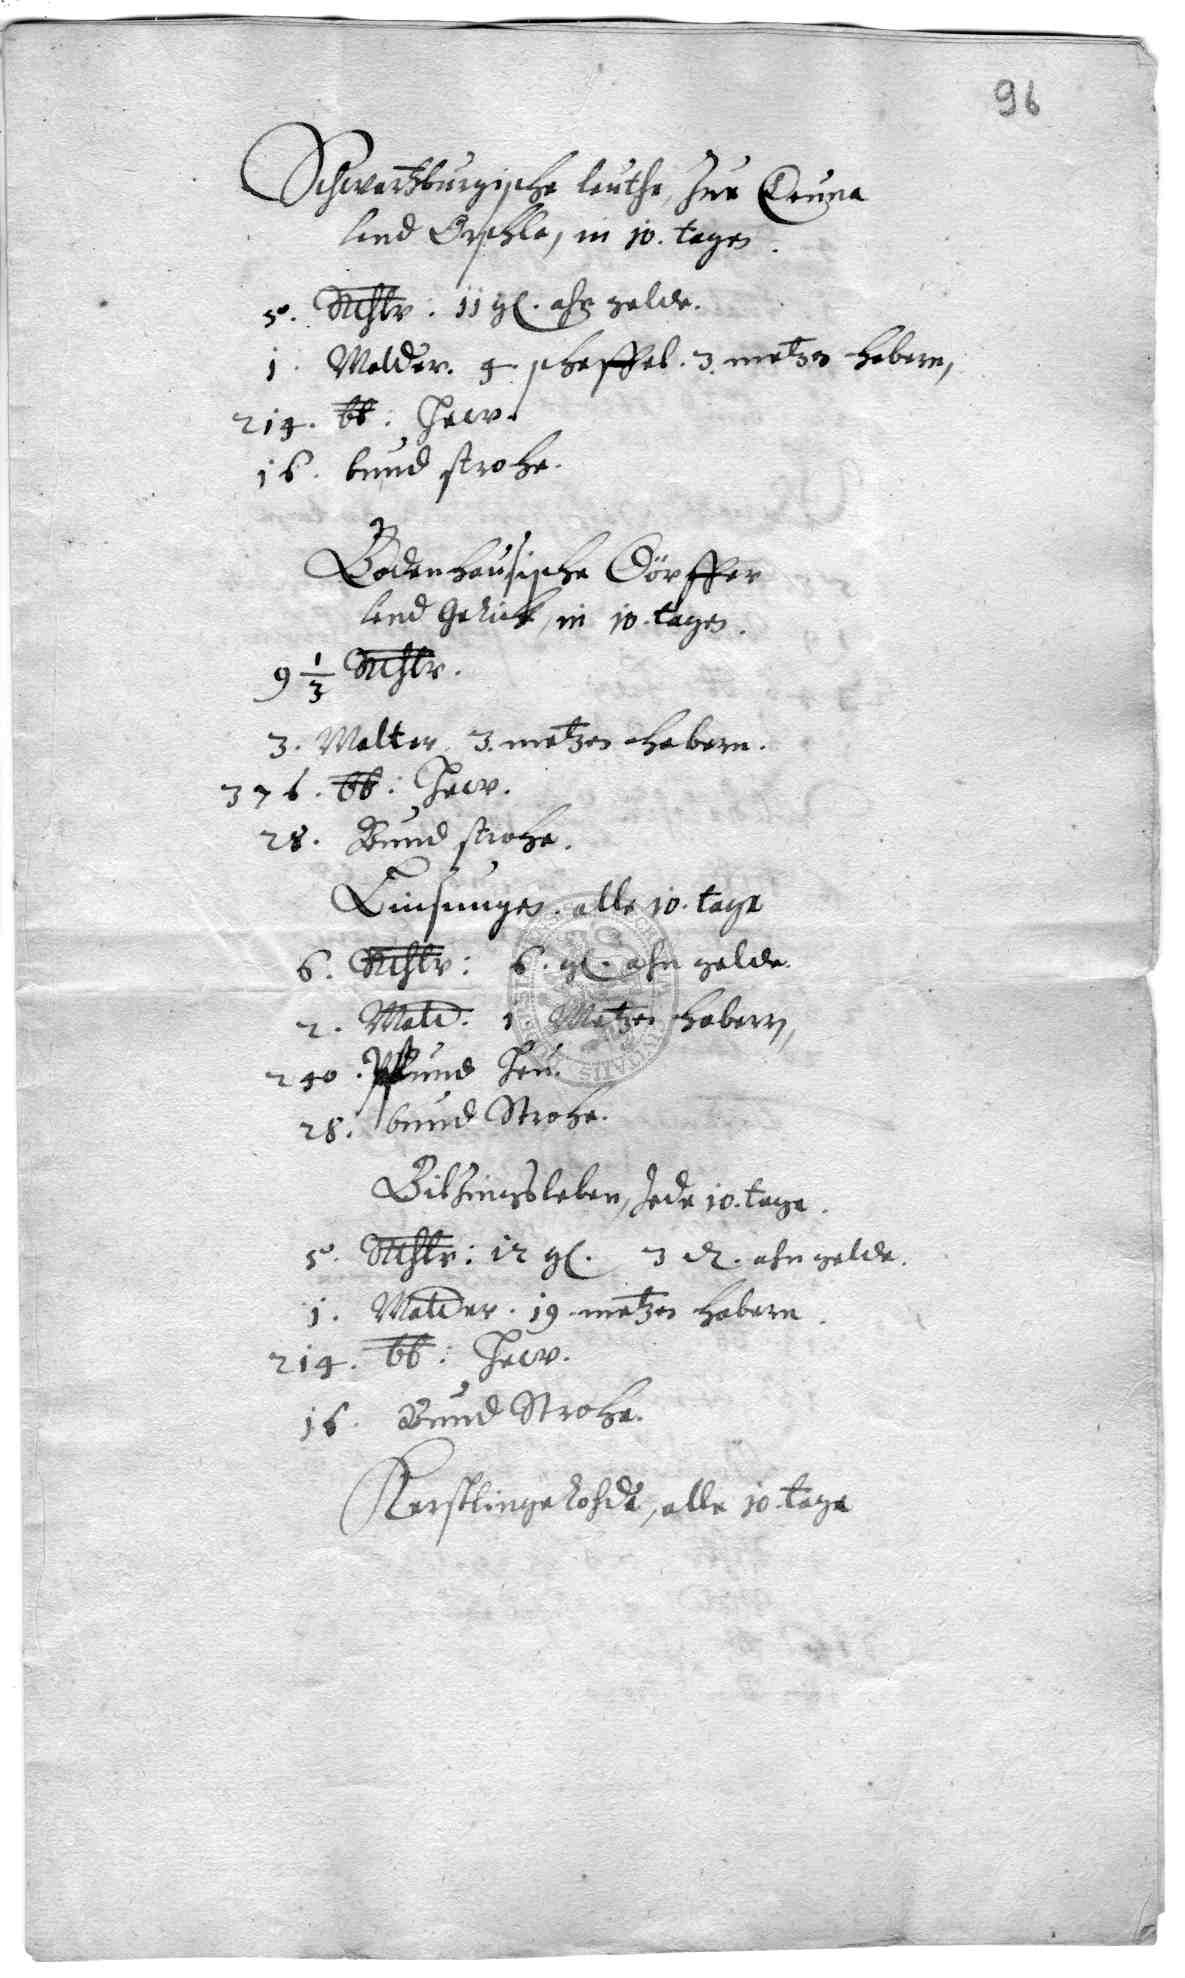 96
Schwartzburgische leuthe, Zue Cruna
und Orschla, in 10. tagen.
5. Rthlr: 11 gl. ahn gelde.
1. Malder. 4 scheffel. 3. metzen habern,
214. ℔: Hew.
16. bund strohe.
Bodenhausische Dörffer
und Gericht, in 10. tagen.
9 1/3 Rthlr.
3. Malter 3. metzen habern.
376. ℔: Hew.
28. Bund strohe.
Linsungen. alle 10. tage
6. Rthlr: 6. gl. ahn gelde.
2. Mald. 1 Metzen habern,
240. Pfund Heu.
28. bund Strohe.
Biltzingsleben, Jede 10. tage.
5. Rthlr: 12 gl. 3 ₰. ahn gelde.
1. Malder. 19 metzen habern.
214. ℔: Hew.
16. Bund Strohe.
Kerstlingerohde, alle 10. tage